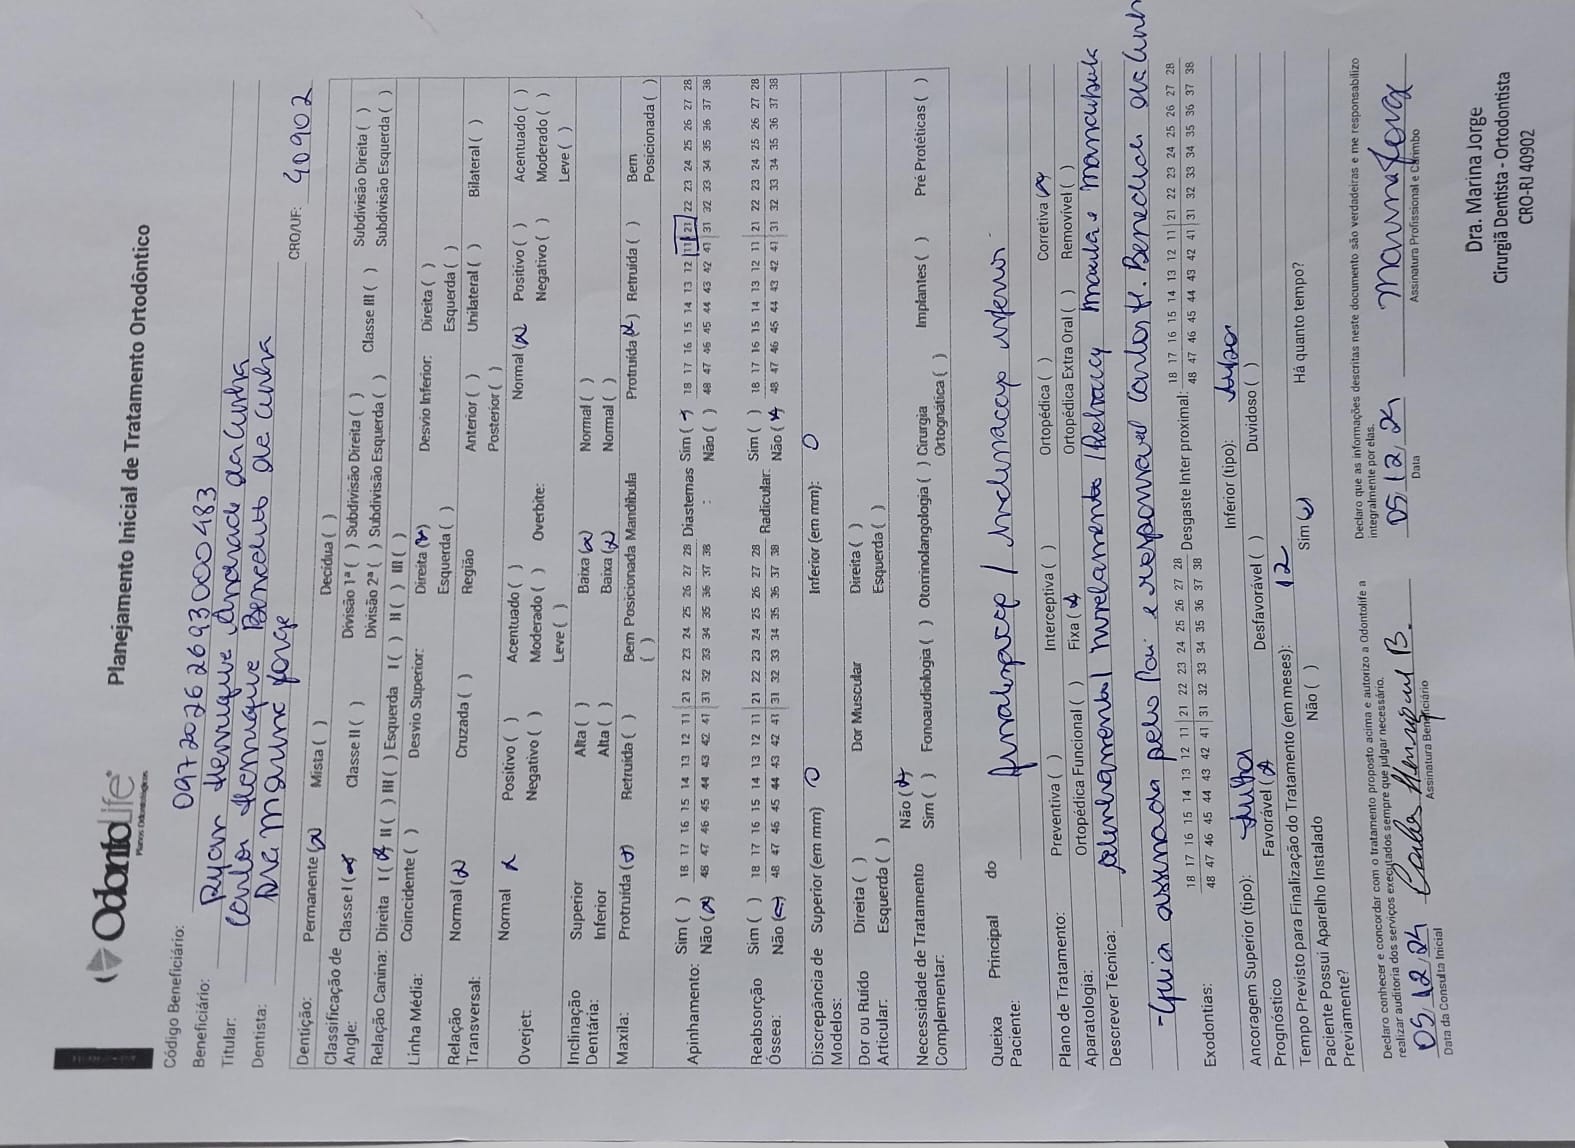 OdontoLife
Planos Odontológicos
Planejamento Inicial de Tratamento Ortodôntico
Código Beneficiário: 0972026269300483
Beneficiário: Ryan Henrique Andrade da Cunha
Titular: Carlos Henrique Benedito da Cunha
Dentista: Dra Marina Jorge CRO/UF: 40902
Dentição: Permanente (x) Mista ( ) Decídua ( )
Classificação de Angle: Classe I (x) Classe II ( ) Divisão 1ª ( ) Subdivisão Direita ( ) Classe III ( ) Subdivisão Direita ( )
Divisão 2ª ( ) Subdivisão Esquerda ( ) Subdivisão Esquerda ( )
Relação Canina: Direita I (x) II ( ) III ( ) Esquerda I ( ) II ( ) III ( )
Linha Média: Coincidente ( ) Desvio Superior: Direita (x) Desvio Inferior: Direita ( )
Esquerda ( ) Esquerda ( )
Relação Transversal: Normal (x) Cruzada ( ) Região Anterior ( ) Unilateral ( ) Bilateral ( )
Posterior ( )
Overjet: Normal x Positivo ( ) Acentuado ( ) Overbite: Normal (x) Positivo ( ) Acentuado ( )
Negativo ( ) Moderado ( ) Negativo ( ) Moderado ( )
Leve ( ) Leve ( )
Inclinação Dentária: Superior Alta ( ) Baixa (x) Normal ( )
Inferior Alta ( ) Baixa (x) Normal ( )
Maxila: Protruída (x) Retruída ( ) Bem Posicionada ( ) Mandíbula Protruída (x) Retruída ( ) Bem Posicionada ( )
Apinhamento: Sim ( ) 18 17 16 15 14 13 12 11 | 21 22 23 24 25 26 27 28 Diastemas : Sim (x) 18 17 16 15 14 13 12 11 | 21 22 23 24 25 26 27 28
Não (x) 48 47 46 45 44 43 42 41 | 31 32 33 34 35 36 37 38 Não ( ) 48 47 46 45 44 43 42 41 | 31 32 33 34 35 36 37 38
Reabsorção Óssea: Sim ( ) 18 17 16 15 14 13 12 11 | 21 22 23 24 25 26 27 28 Radicular: Sim ( ) 18 17 16 15 14 13 12 11 | 21 22 23 24 25 26 27 28
Não (x) 48 47 46 45 44 43 42 41 | 31 32 33 34 35 36 37 38 Não (x) 48 47 46 45 44 43 42 41 | 31 32 33 34 35 36 37 38
Discrepância de Modelos: Superior (em mm) 0 Inferior (em mm): 0
Dor ou Ruído Articular: Direita ( ) Dor Muscular Direita ( )
Esquerda ( ) Esquerda ( )
Necessidade de Tratamento Complementar: Não (x)
Sim ( ) Fonoaudiologia ( ) Otorrinolangologia ( ) Cirurgia Ortognática ( ) Implantes ( ) Pré Protéticas ( )
Queixa Principal do Paciente: inferior
Plano de Tratamento: Preventiva ( ) Interceptiva ( ) Ortopédica ( ) Corretiva (x)
Aparatologia: Ortopédica Funcional ( ) Fixa (x) Ortopédica Extra Oral ( ) Removível ( )
Descrever Técnica: alinhamento / nivelamento / maxila e mandíbula
- Guia assinada pelo Pai e responsável Carlos H. Benedito da Cunh
Exodontias: 18 17 16 15 14 13 12 11 | 21 22 23 24 25 26 27 28 Desgaste Inter proximal: 18 17 16 15 14 13 12 11 | 21 22 23 24 25 26 27 28
48 47 46 45 44 43 42 41 | 31 32 33 34 35 36 37 38 48 47 46 45 44 43 42 41 | 31 32 33 34 35 36 37 38
Ancoragem Superior (tipo): Inferior (tipo):
Prognóstico Favorável (x) Desfavorável ( ) Duvidoso ( )
Tempo Previsto para Finalização do Tratamento (em meses): 12
Paciente Possui Aparelho Instalado Previamente? Não ( ) Sim (x) Há quanto tempo?
Declaro conhecer e concordar com o tratamento proposto acima e autorizo a Odontolife a
realizar auditoria dos serviços executados sempre que julgar necessário.
Declaro que as informações descritas neste documento são verdadeiras e me responsabilizo
integralmente por elas.
05,12,24 Carlos Henrique B. 05,12,24 Marina Jorge
Data da Consulta Inicial Assinatura Beneficiário Data Assinatura Profissional e Carimbo
Dra. Marina Jorge
Cirurgiã Dentista - Ortodontista
CRO-RJ 40902